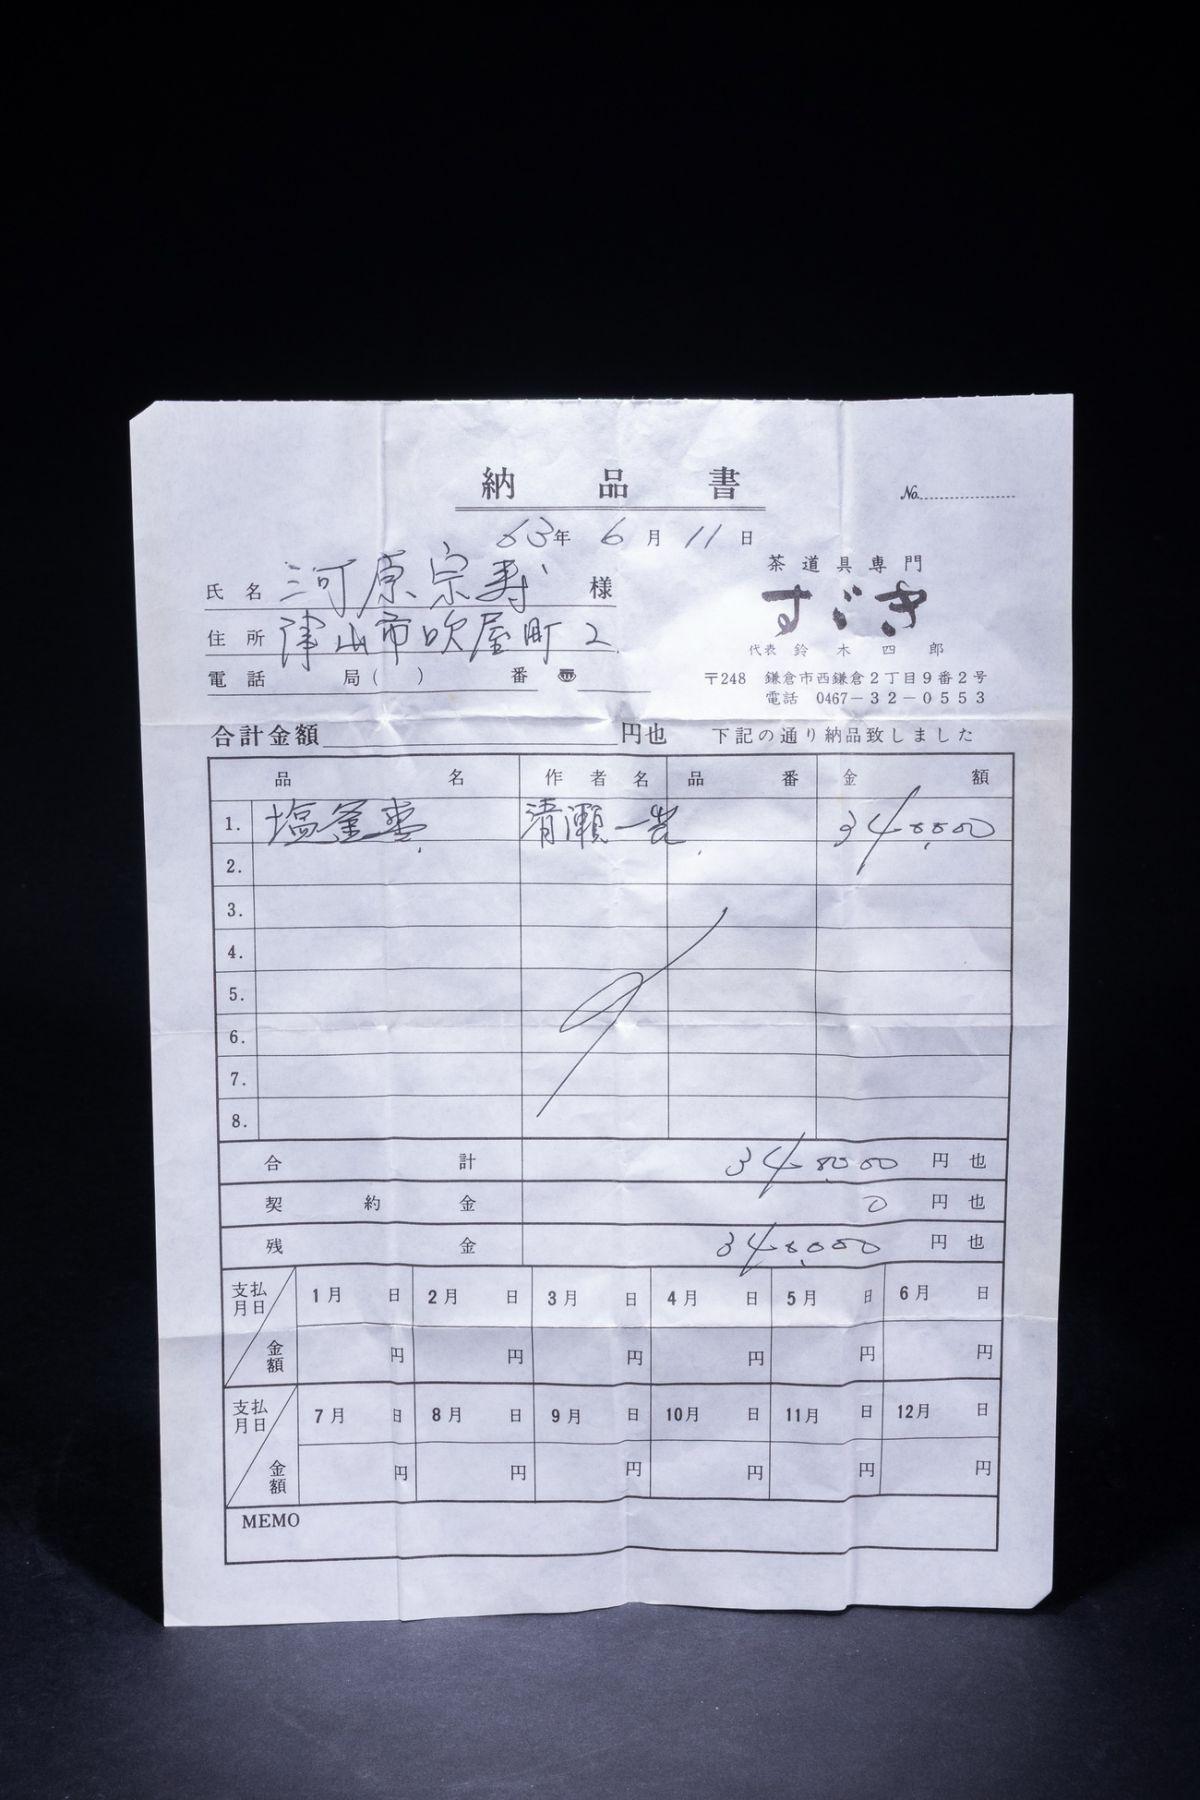 納品書
No.
63年6月11日
茶道具専門
氏名 河原宗寿 様
すゞき
住所 津山市吹屋町2
代表 鈴木四郎
電話 局( ) 番 〠
〒248 鎌倉市西鎌倉2丁目9番2号
電話 0467-32-0553
合計金額 円也 下記の通り納品致しました
品名 作者名 品番 金額
1. 塩釜棗 清瀬一光 348,000
2.
3.
4.
5.
6.
7.
8.
合計 348,000 円也
契約金 0 円也
残金 348,000 円也
支払月日 1月 日 2月 日 3月 日 4月 日 5月 日 6月 日
金額 円 円 円 円 円 円
支払月日 7月 日 8月 日 9月 日 10月 日 11月 日 12月 日
金額 円 円 円 円 円 円
MEMO